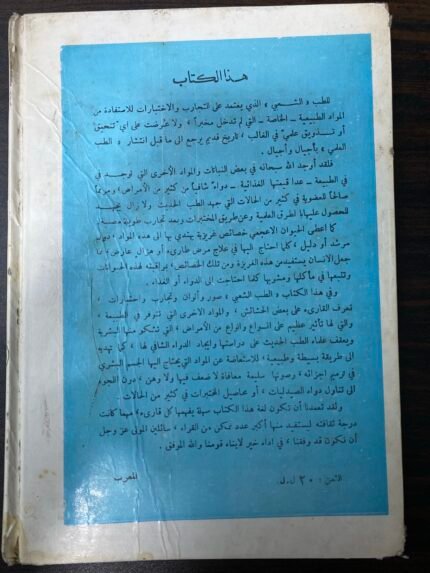 هذا الكتاب
للطب « الشعبي » الذي يعتمد على التجارب والاختبارات للاستفادة من
المواد الطبيعية ــ الخاصة ــ التي لم تدخل مخبراً ، ولا عُرضت على اي تحقيق
أو تدقيق علمي في الغالب ، تاريخ قديم يرجع الى ما قبل انتشار « الطب
العلمي » بأجيال وأجيال .
فلقد أوجد الله سبحانه في بعض النباتات والمواد الأخرى التي توجد في
في الطبيعة ــ عدا قيمتها الغذائية ــ دواءً شافياً من كثير من الأمراض
صالحاً للعضوية في كثير من الحالات التي جهد الطب الحديث ولا زال يجهد
للحصول عليها بالطرق العلمية وعن طريق المختبرات وبعد تجارب طويلة
كما أعطى الحيوان الاعجمي خصائص غريزية يهتدي بها الى هذه المواد ، دون
مرشد أو دليل ، كلما احتاج اليها في علاج مرض طارىء أو هزال عارض ، مما
جعل الانسان يستفيد من هذه الغريزة ومن تلك الخصائص ، بمراقبته لهذه الحيوانات
وتتبعها في مأكلها ومشربها كلما احتاجت الى الدواء أو الغذاء .
وفي هذا الكتاب « الطب الشعبي » صور وألوان وتجارب واختبارات ،
تعرف القارىء على بعض الحشائش ، والمواد الاخرى التي تتوفر في الطبيعة ،
والتي لها تأثير عظيم على انواع وانواع من الأمراض ، التي تشكو منها البشرية
ويعكف علماء الطب الحديث على دراستها وإيجاد الدواء الشافي لها ، كما تهديه
الى طريقة بسيطة وطبيعية ، للاستعاضة عن المواد التي يحتاج اليها الجسم البشري
في ترميم اجزائه ، وصونها سليمة معافاة لا ضعف فيها ولا وهن ، دون اللجوء
الى تناول دواء الصيدليات ، أو محاصيل المختبرات في كثير من الحالات .
ولقد تعمدنا أن تكون لغة هذا الكتاب سهلة يفهمها كل قارىء ، مهما كانت
درجة ثقافته ليستفيد منها أكبر عدد ممكن من القراء ، سائلين المولى عز وجل
أن نكون قد وفقنا ، في اداء خير لابناء قومنا والله الموفق .
المعرب
الثمن : ٢٠ ل.ل.